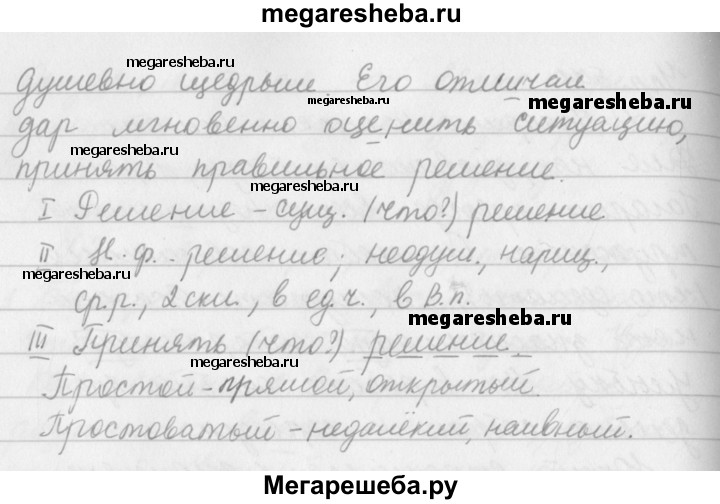 megaresheba.ru
megaresheba.ru
душевно щедрым. Его отличал
megaresheba.ru
megaresheba.ru
дар мгновенно оценить ситуацию,
megaresheba.ru
принять правильное решение.
megaresheba.ru
I Решение – сущ. (что?) решение
II Н.ф. - решение; неодуш., нариц.,
megaresheba.ru
ср.р., 2 скл., в ед.ч., в В.п.
megaresheba.ru
III Принять (что?) решение
megaresheba.ru
Простой – прямой, открытый.
Простоватый – недалёкий, наивный.
Мегарешеба.ру